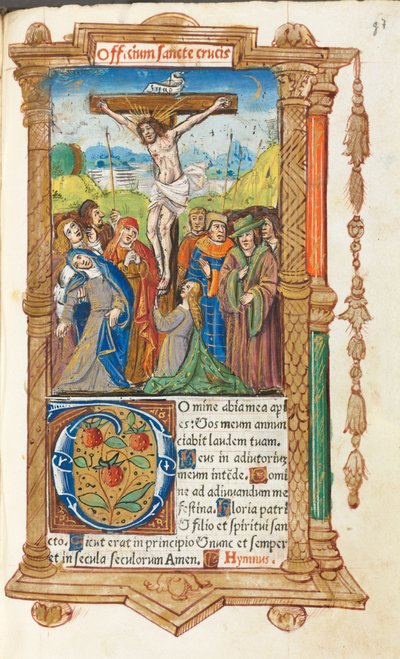 97
Officium sancte crucis
INRI
Omine labia mea apt
es: Vos meum annun
ciabit laudem tuam.
Deus in adiutoriuz
meum intēde. Domi
ne ad adiuvandum me
festina. Gloria patri
& filio et spiritui san
cto. Sicut erat in principio & nunc et semper
et in secula seculorum Amen. Hymnus.